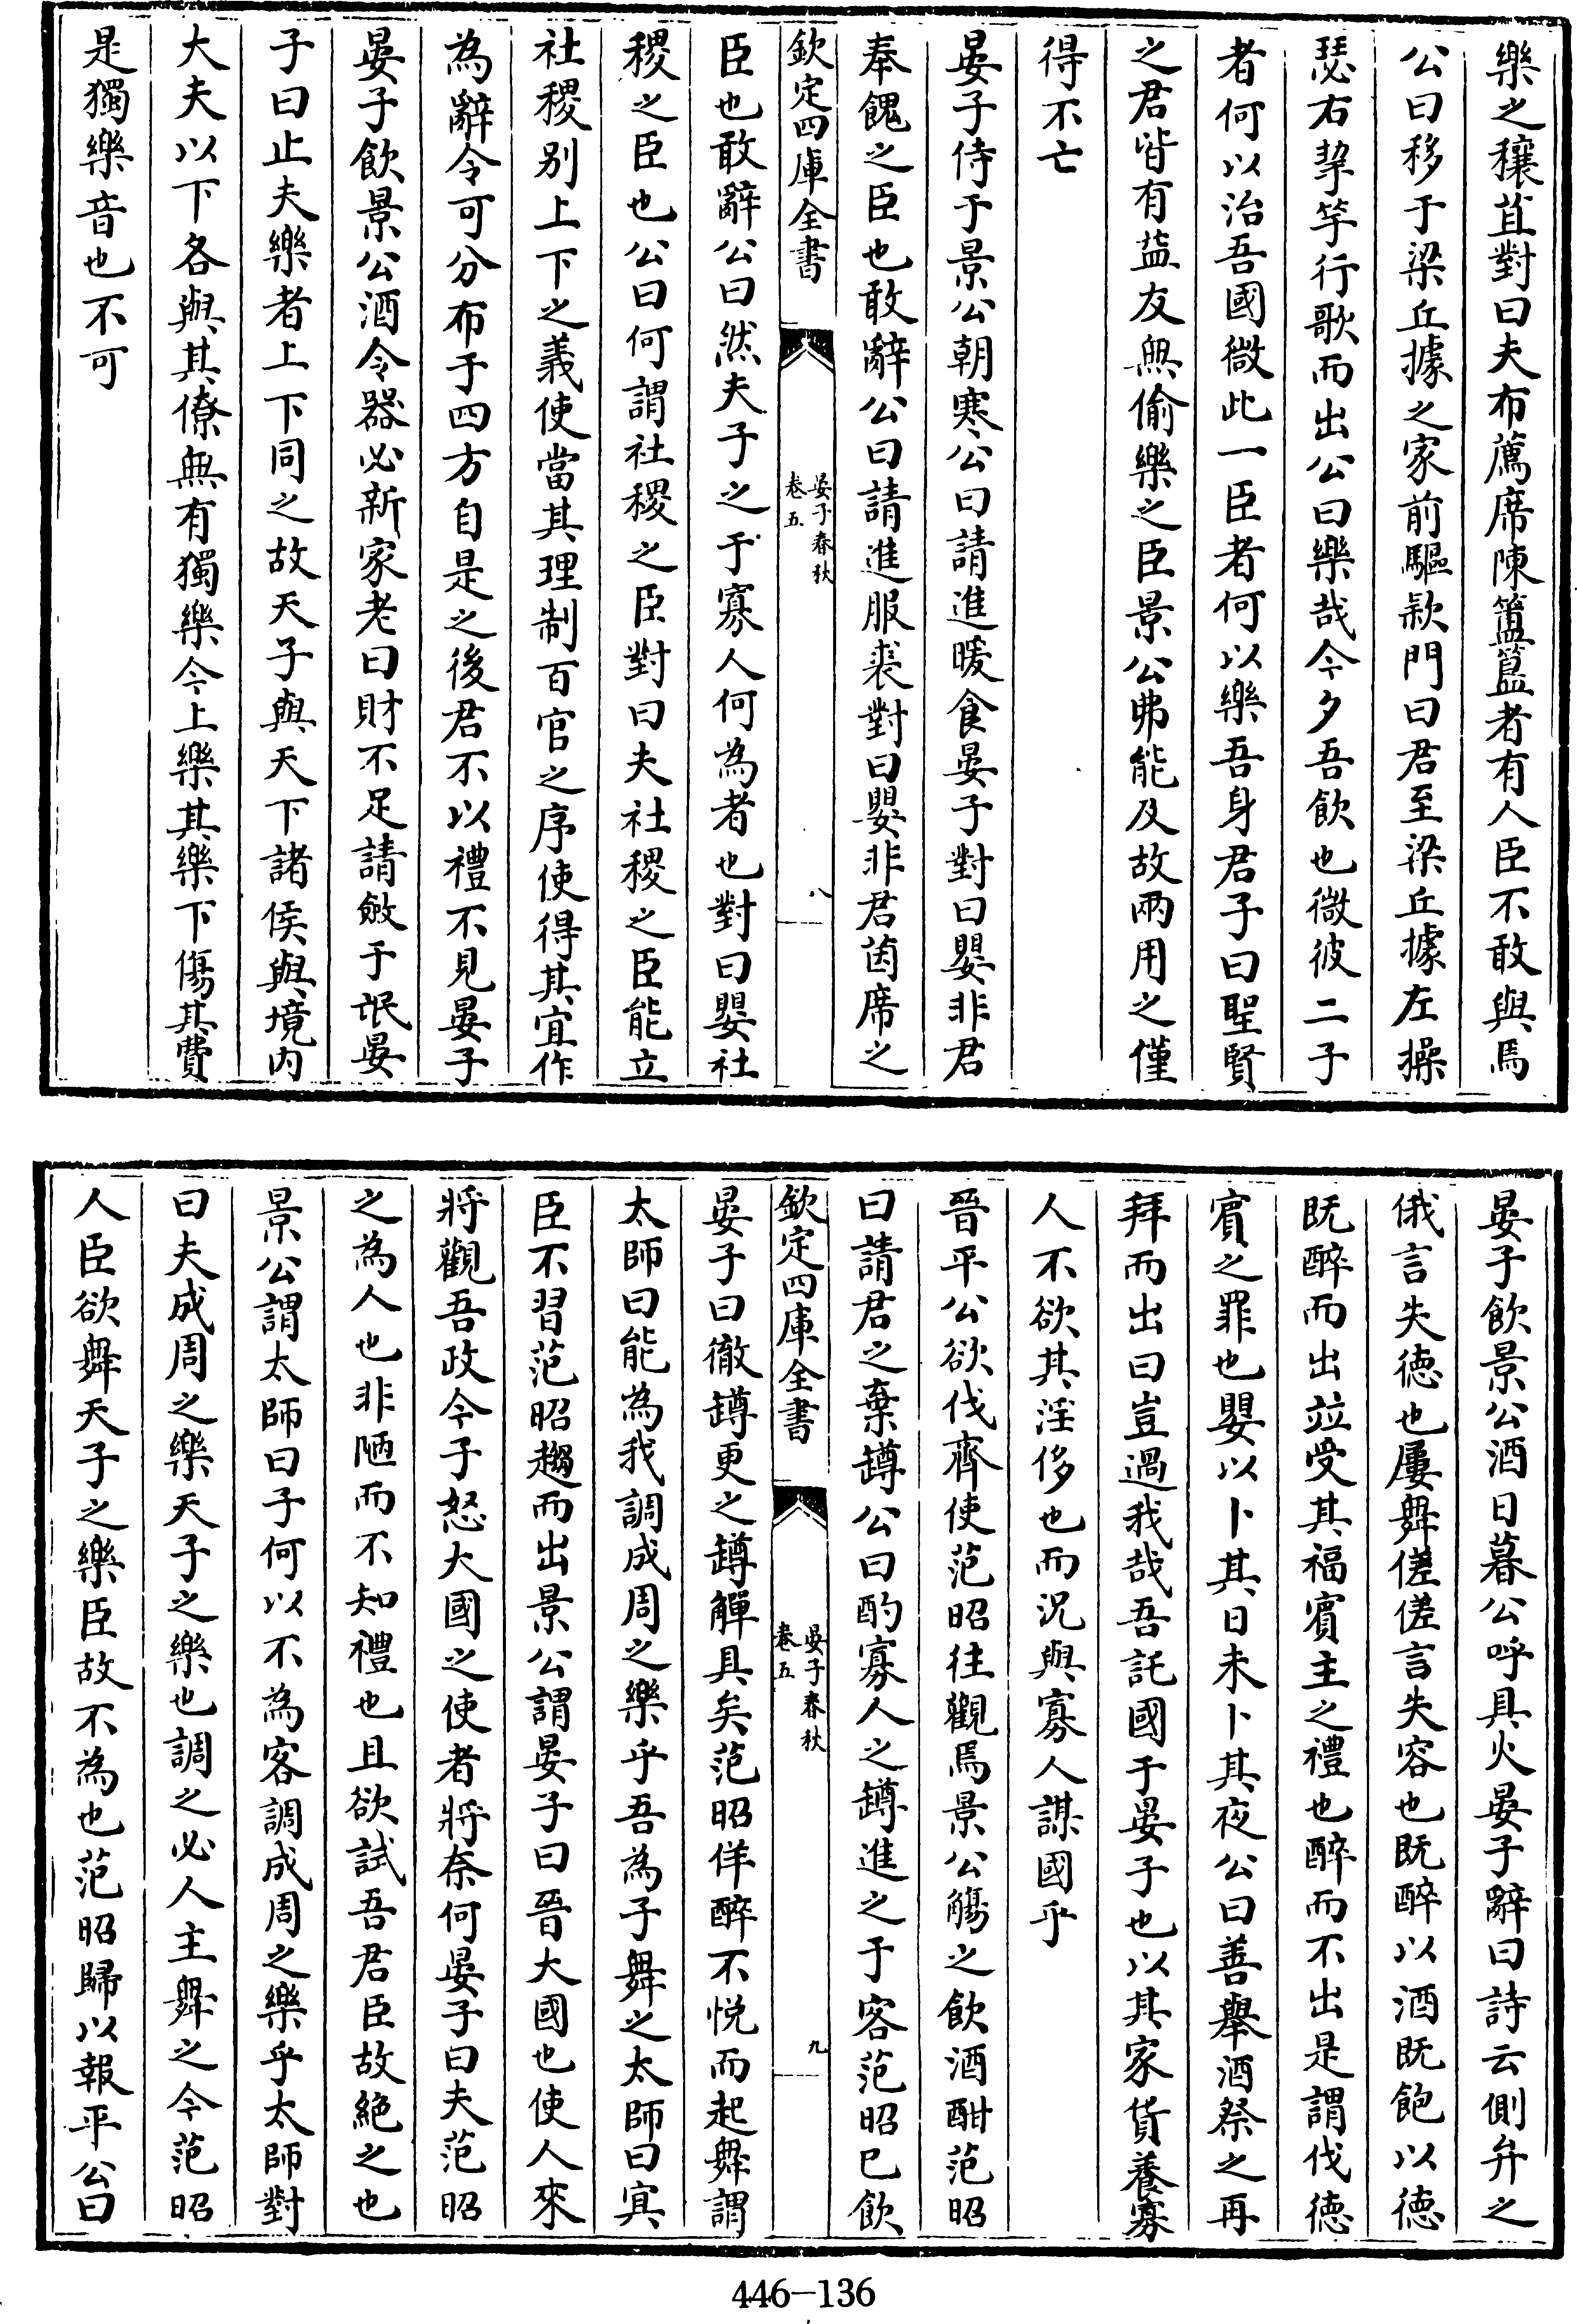 樂之穰苴對曰夫布薦席陳簠簋者有人臣不敢與焉
公曰移于梁丘據之家前驅款門曰君至梁丘據左操
瑟右挈竽行歌而出公曰樂哉今夕吾飲也微彼二子
者何以治吾國微此一臣者何以樂吾身君子曰聖賢
之君皆有益友無偷樂之臣景公弗能及故兩用之僅
得不亡
晏子侍于景公朝寒公曰請進暖食晏子對曰嬰非君
奉餽之臣也敢辭公曰請進服裘對曰嬰非君茵席之
欽定四庫全書
晏子春秋
卷五
八
臣也敢辭公曰然夫子之于寡人何為者也對曰嬰社
稷之臣也公曰何謂社稷之臣對曰夫社稷之臣能立
社稷别上下之義使當其理制百官之序使得其宜作
為辭令可分布于四方自是之後君不以禮不見晏子
晏子飲景公酒令器必新家老曰財不足請斂于氓晏
子曰止夫樂者上下同之故天子與天下諸侯與境内
大夫以下各與其僚無有獨樂今上樂其樂下傷其費
是獨樂音也不可
晏子飲景公酒日暮公呼具火晏子辭曰詩云側弁之
俄言失德也屢舞傞傞言失容也既醉以酒既飽以德
既醉而出竝受其福賓主之禮也醉而不出是謂伐德
賓之罪也嬰以卜其日未卜其夜公曰善舉酒祭之再
拜而出曰豈過我哉吾託國于晏子也以其家貨養寡
人不欲其淫侈也而況與寡人謀國乎
晉平公欲伐齊使范昭往觀焉景公觴之飲酒酣范昭
曰請君之棄罇公曰酌寡人之罇進之于客范昭已飲
欽定四庫全書
晏子春秋
卷五
九
晏子曰徹罇更之罇觶具矣范昭佯醉不悅而起舞謂
太師曰能為我調成周之樂乎吾為子舞之太師曰冥
臣不習范昭趨而出景公謂晏子曰晉大國也使人來
將觀吾政今子怒大國之使者將奈何晏子曰夫范昭
之為人也非陋而不知禮也且欲試吾君臣故絶之也
景公謂太師曰子何以不為客調成周之樂乎太師對
曰夫成周之樂天子之樂也調之必人主舞之今范昭
人臣欲舞天子之樂臣故不為也范昭歸以報平公曰
446-136